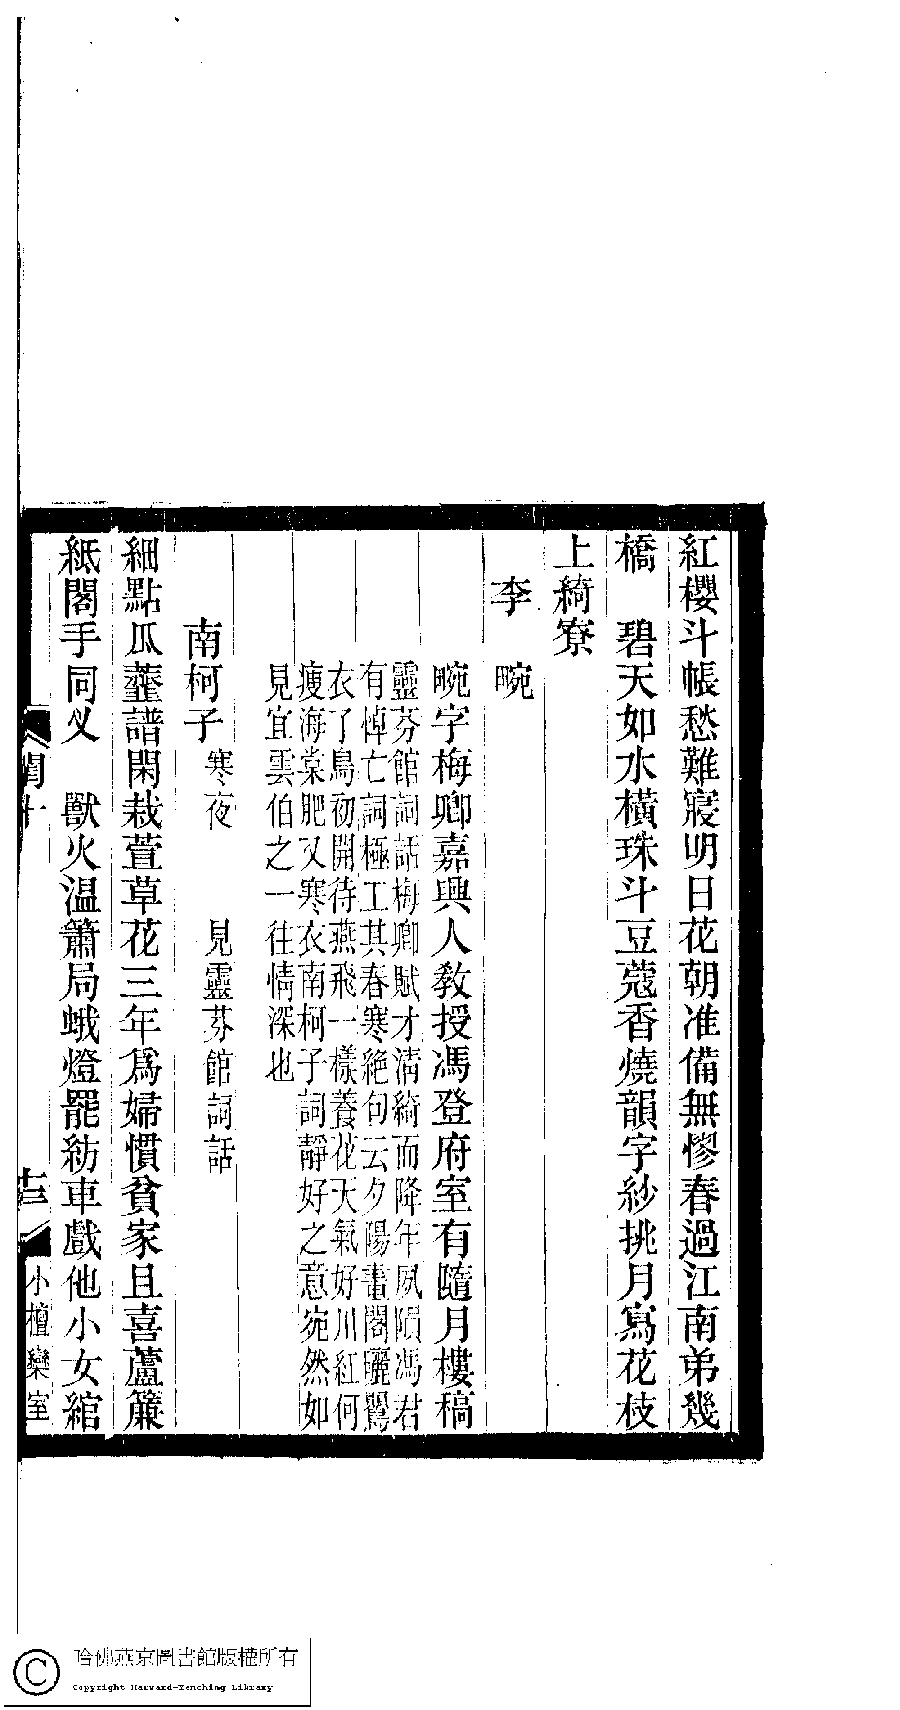 紅櫻斗帳愁難寢明日花朝准備無憀春過江南弟幾
橋　碧天如水橫珠斗豆蔻香燒韻字紗挑月寫花枝
上綺寮
李　畹
畹字梅卿嘉興人教授馮登府室有隨月樓稿
靈芬館詞話梅卿賦才淸綺而降年夙隕馮君
有悼亡詞極工其春寒絶句云夕陽畫閣曬鴛
衣了鳥初開待燕飛一樣養花天氣好川紅何
瘦海棠肥又寒衣南柯子詞靜好之意宛然如
見宜雲伯之一往情深也
南柯子寒夜　見靈芬館詞話
細點瓜虀譜閑栽萱草花三年爲婦慣貧家且喜蘆簾
紙閣手同叉　獸火温簫局蛾燈罷紡車戲他小女綰
閏十
十三
小檀欒室
哈佛燕京圖書館版權所有
Copyright Harvard-Yenching Library